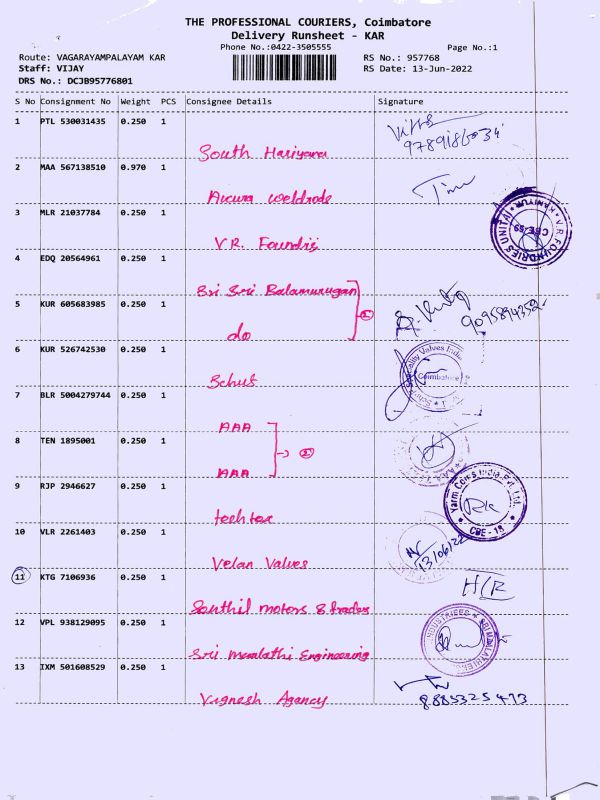 THE PROFESSIONAL COURIERS, Coimbatore
Delivery Runsheet - KAR
Phone No.:0422-3505555 Page No.:1
Route: VAGARAYAMPALAYAM KAR RS No.: 957768
Staff: VIJAY RS Date: 13-Jun-2022
DRS No.: DCJB95776801
S No Consignment No Weight PCS Consignee Details Signature
1 PTL 530031435 0.250 1
South Hariyana
2 MAA 567138510 0.970 1
weldrods
3 MLR 21037784 0.250 1
V.R. FOUNDRIES UNIT
V.R. Foundry
4 EDQ 20564961 0.250 1
Sri Sri Balamurugan
5 KUR 605683985 0.250 1
do
9095894352
6 KUR 526742530 0.250 1
Valves India
Coimbatore
7 BLR 5004279744 0.250 1
AAA
8 TEN 1895001 0.250 1
AAA
9 RJP 2946627 0.250 1
Yarn Cones India Pvt. Ltd.
CBE - 15
techtex
10 VLR 2261403 0.250 1
13/06/22
Velan Valves
11 KTG 7106936 0.250 1
Senthil motors & traders
12 VPL 938129095 0.250 1
INDUSTRIES SRI MAALATHI
Sri Maalathi Engineering
13 IXM 501608529 0.250 1
Vignesh Agancy
8885325473